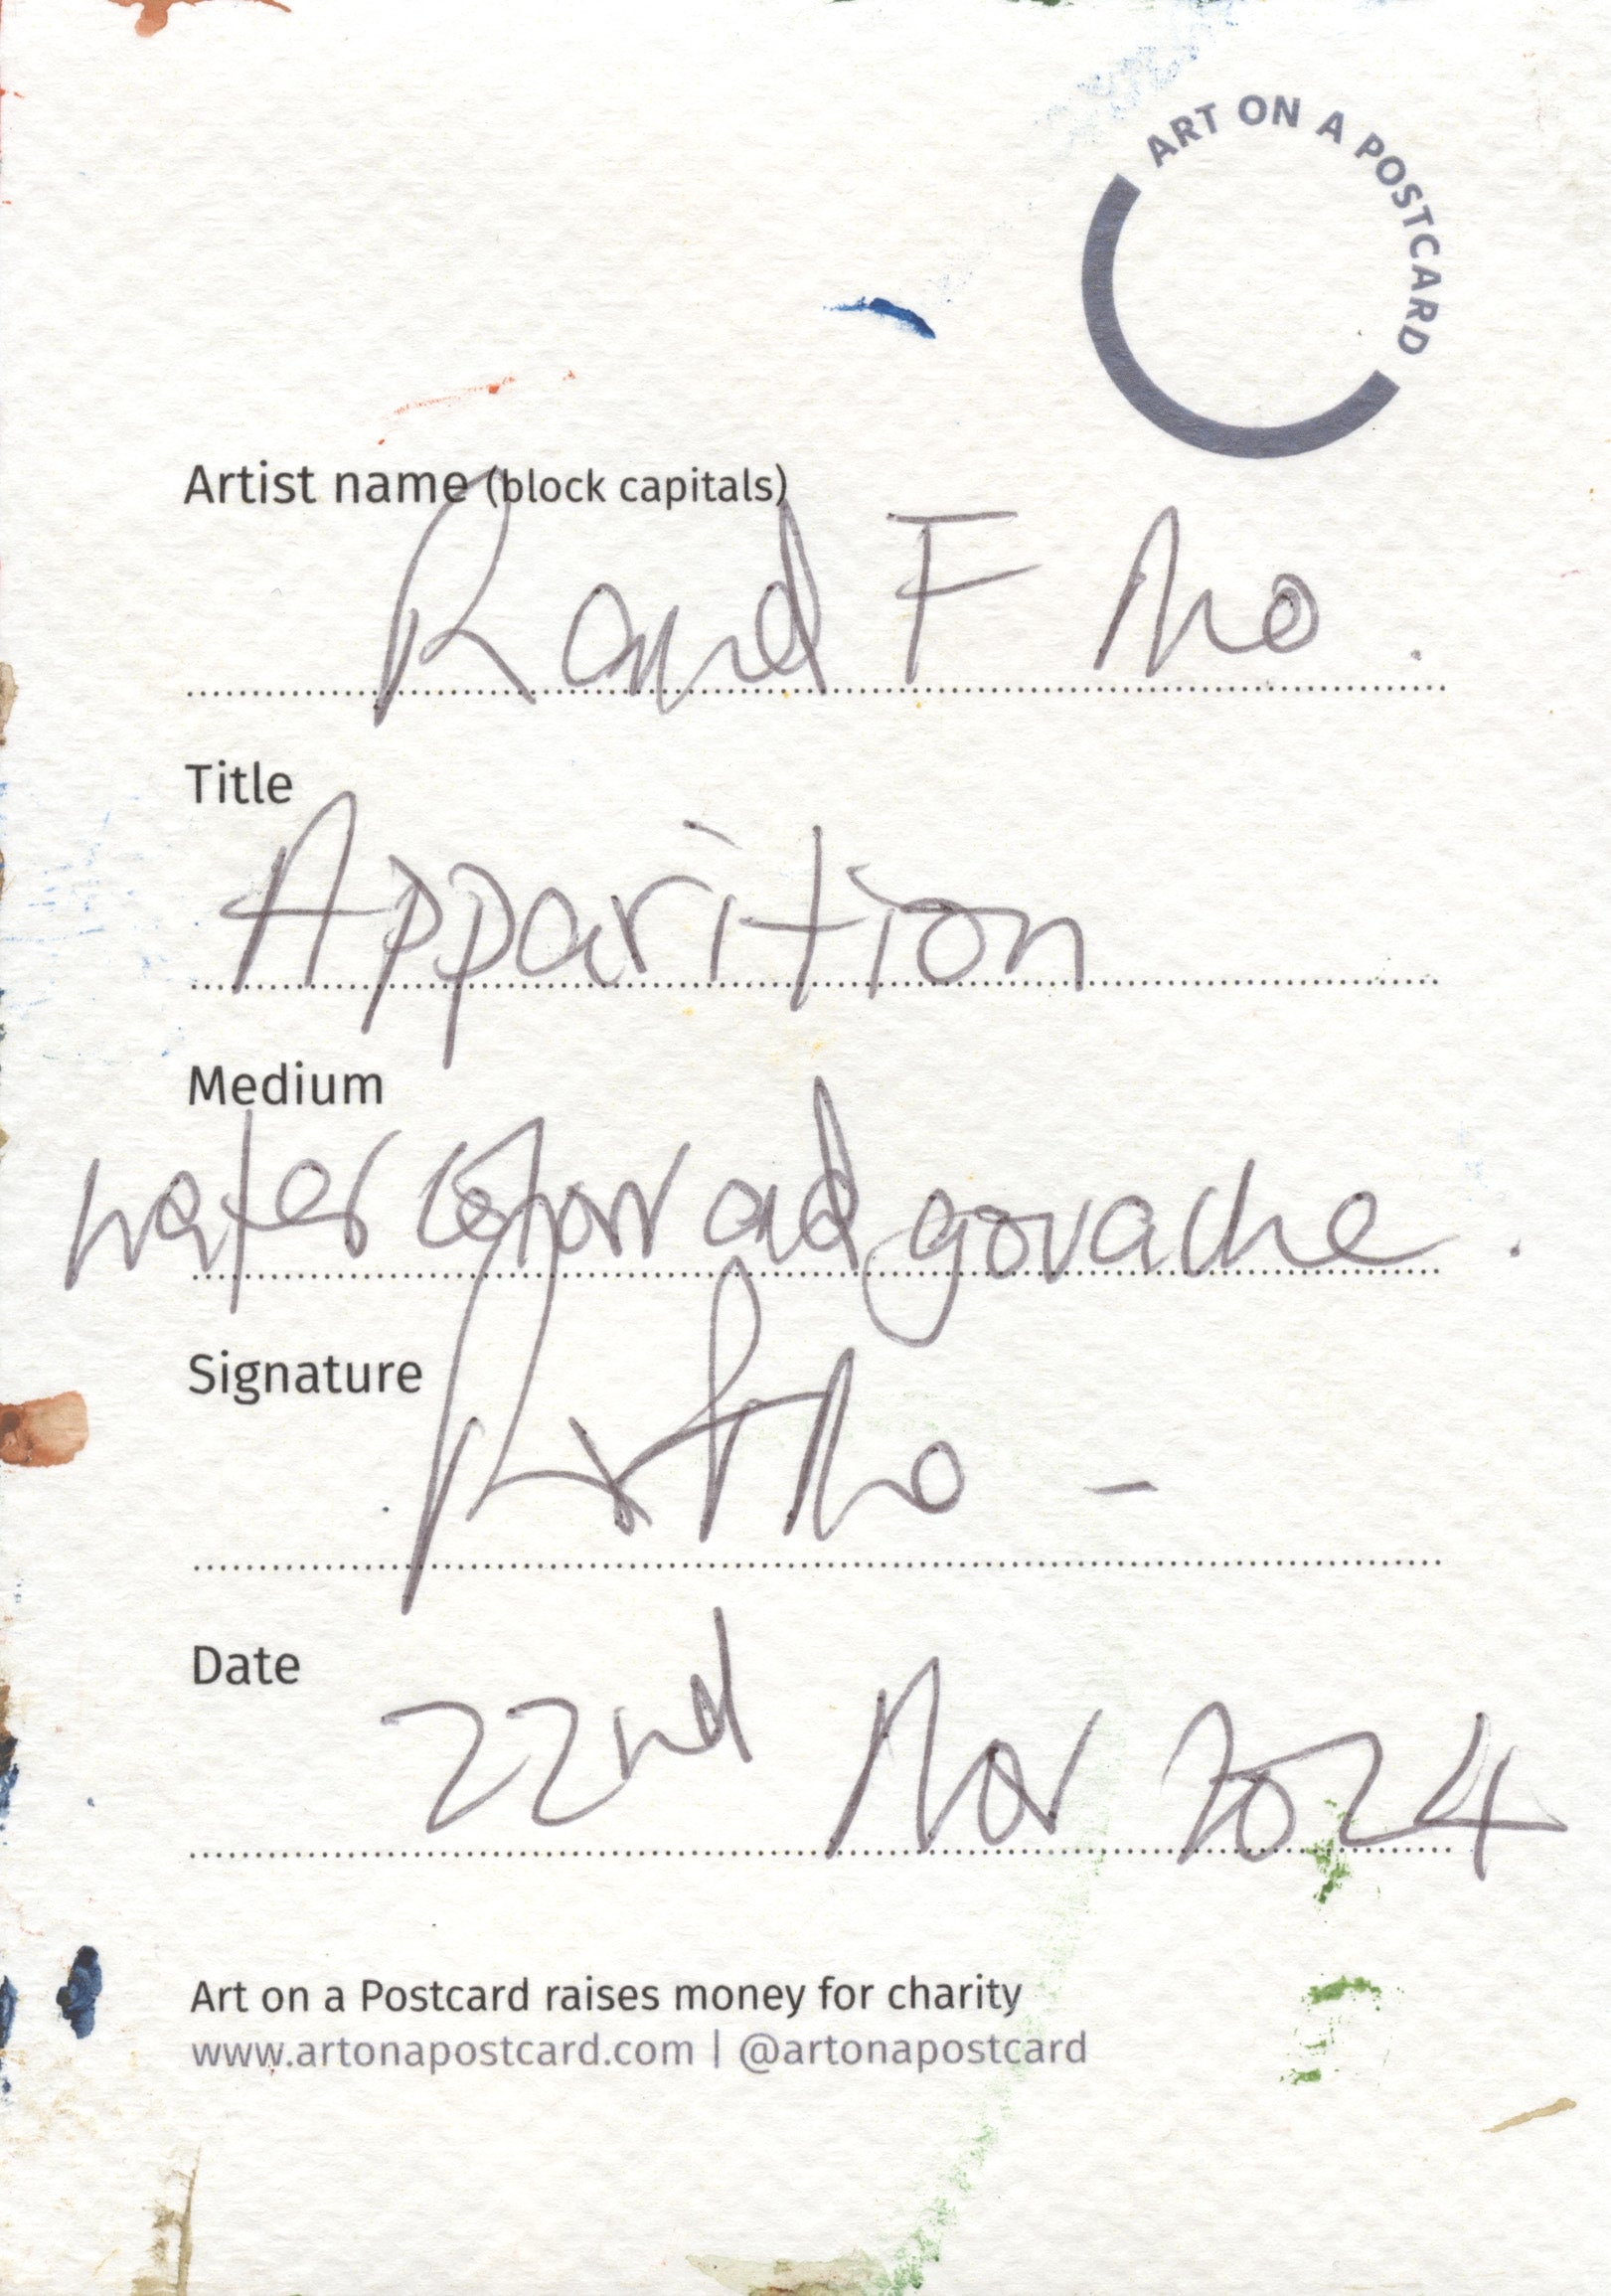 ART ON A POSTCARD
Artist name (block capitals)
F Mo.
Title
Apparition
Medium
water colour ad gouache.
Signature
Date
22nd Nov 2024
Art on a Postcard raises money for charity
www.artonapostcard.com | @artonapostcard